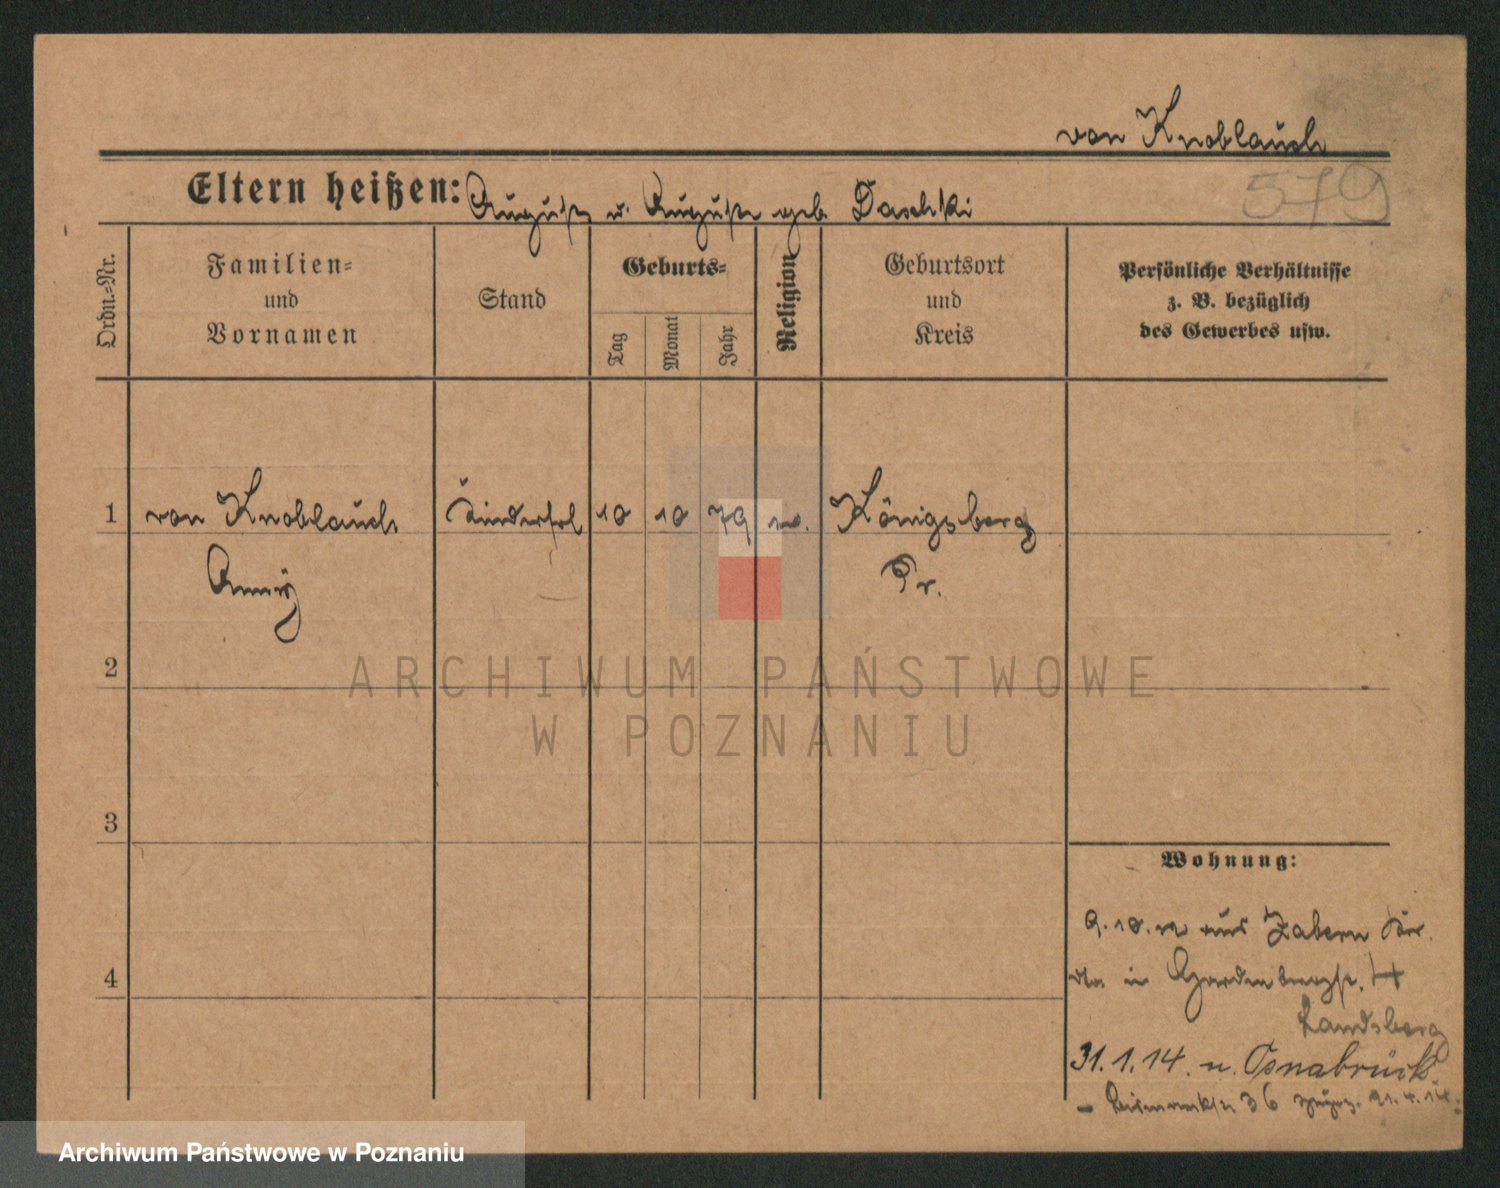 von Knoblauch
Eltern heißen: August u. Auguste geb. Daschki
579
Ordn.-Nr.
Familien-
und
Vornamen
Stand
Geburts-
Tag
Monat
Jahr
Religion
Geburtsort
und
Kreis
Persönliche Verhältnisse
z. B. bezüglich
des Gewerbes usw.
1 von Knoblauch Kinderfrl 10 10 79 Königsberg
Anny Pr.
2
ARCHIWUM PAŃSTWOWE
W POZNANIU
3
Wohnung:
9.10.12 aus Zabern
4
in 4
Landsberg
31.1.14. n. Osnabrück
36 21.4.14.
Archiwum Państwowe w Poznaniu